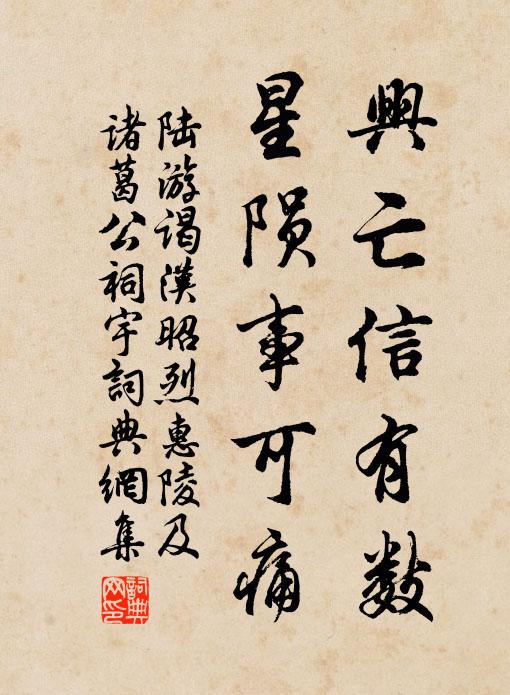 興亡信有數
星陨事可痛
陆游谒漢昭烈惠陵及
诸葛公祠宇詞典網集
詞典网印